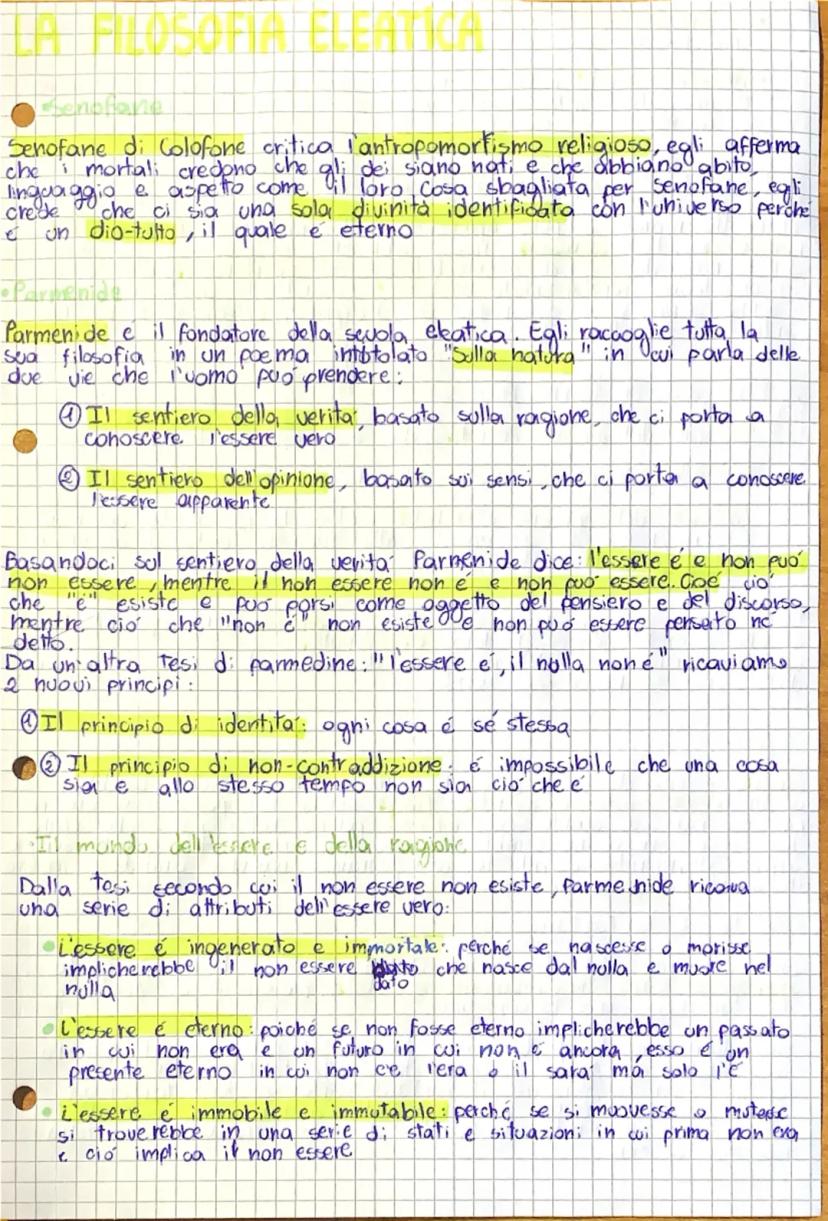 LA FILOSOFIA ELEATICA
•Senofane
Senofane di Colofone critica l'antropomorfismo religioso, egli afferma
che i mortali credono che gli dei siano nati e che abbiano abito,
linguaggio e aspetto come il loro cosa sbagliata per Senofane, egli
crede che ci sia una sola divinità identificata con l'universo perché
é un dio-tutto, il quale é eterno
•Parmenide
Parmenide é il fondatore della scuola eleatica. Egli raccoglie tutta la
sua filosofia in un poema intitolato "Sulla natura" in cui parla delle
due vie che l'uomo puó prendere:
① Il sentiero della verità, basato sulla ragione, che ci porta a
conoscere l'essere vero
② Il sentiero dell'opinione, basato sui sensi, che ci porta a conoscere
l'essere apparente
Basandoci sul sentiero della verità Parmenide dice: l'essere é e non puó
non essere, mentre il non essere non é e non puó essere. Cioé ció
che "é" esiste e puó porsi come oggetto del pensiero e del discorso,
mentre ció che "non é" non esiste e non puó essere pensato né
detto.
Da un'altra tesi di parmedine: "l'essere é, il nulla non é" ricaviamo
2 nuovi principi:
① Il principio di identità: ogni cosa é sé stessa
② Il principio di non-contraddizione: é impossibile che una cosa
sia e allo stesso tempo non sia ció che é
•Il mundo dell'essere e della ragione
Dalla tesi secondo cui il non essere non esiste, Parmenide ricava
una serie di attributi dell'essere vero:
• L'essere é ingenerato e immortale: perché se nascesse o morisse
implicherebbe il non essere che nasce dal nulla e muore nel
dato
nulla
• L'essere é eterno: poiché se non fosse eterno implicherebbe un passato
in cui non era e un futuro in cui non é ancora, esso é un
presente eterno in cui non c'e l'era o il sarà ma solo l'é
• L'essere é immobile e immutabile: perché se si muovesse o mutasse
si troverebbe in una serie di stati e situazioni in cui prima non era
e ció implica il non essere